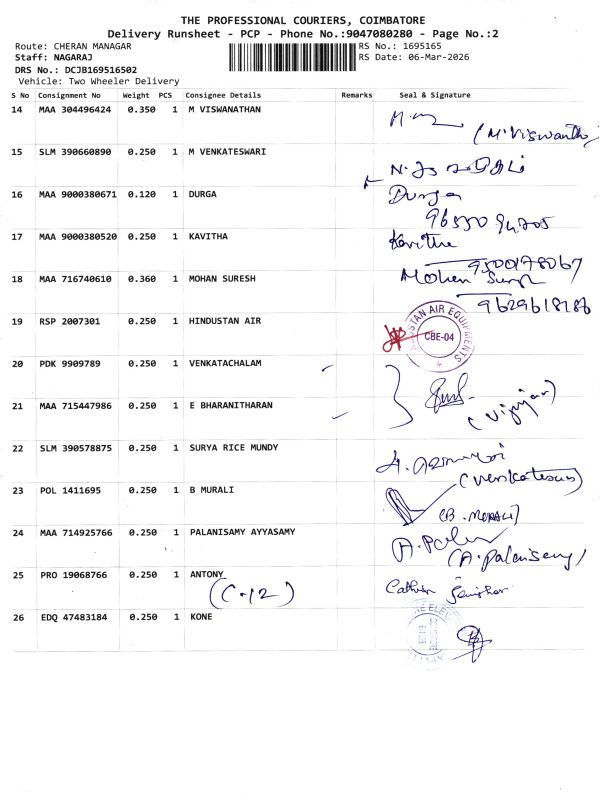 THE PROFESSIONAL COURIERS, COIMBATORE
Delivery Runsheet - PCP - Phone No.:9047080280 - Page No.:2
Route: CHERAN MANAGAR
RS No.: 1695165
Staff: NAGARAJ
RS Date: 06-Mar-2026
DRS No.: DCJB169516502
Vehicle: Two Wheeler Delivery
S No Consignment No Weight PCS Consignee Details Remarks Seal & Signature
14 MAA 304496424 0.350 1 M VISWANATHAN
15 SLM 390660890 0.250 1 M VENKATESWARI
16 MAA 9000380671 0.120 1 DURGA Durga
17 MAA 9000380520 0.250 1 KAVITHA Kavitha
9500178067
18 MAA 716740610 0.360 1 MOHAN SURESH Mohan
9629618186
19 RSP 2007301 0.250 1 HINDUSTAN AIR
STAN AIR EQUIPMENTS
CBE-04
20 PDK 9909789 0.250 1 VENKATACHALAM
21 MAA 715447986 0.250 1 E BHARANITHARAN
22 SLM 390578875 0.250 1 SURYA RICE MUNDY
23 POL 1411695 0.250 1 B MURALI
(B. MURALI)
24 MAA 714925766 0.250 1 PALANISAMY AYYASAMY
25 PRO 19068766 0.250 1 ANTONY
(C-12)
26 EDQ 47483184 0.250 1 KONE